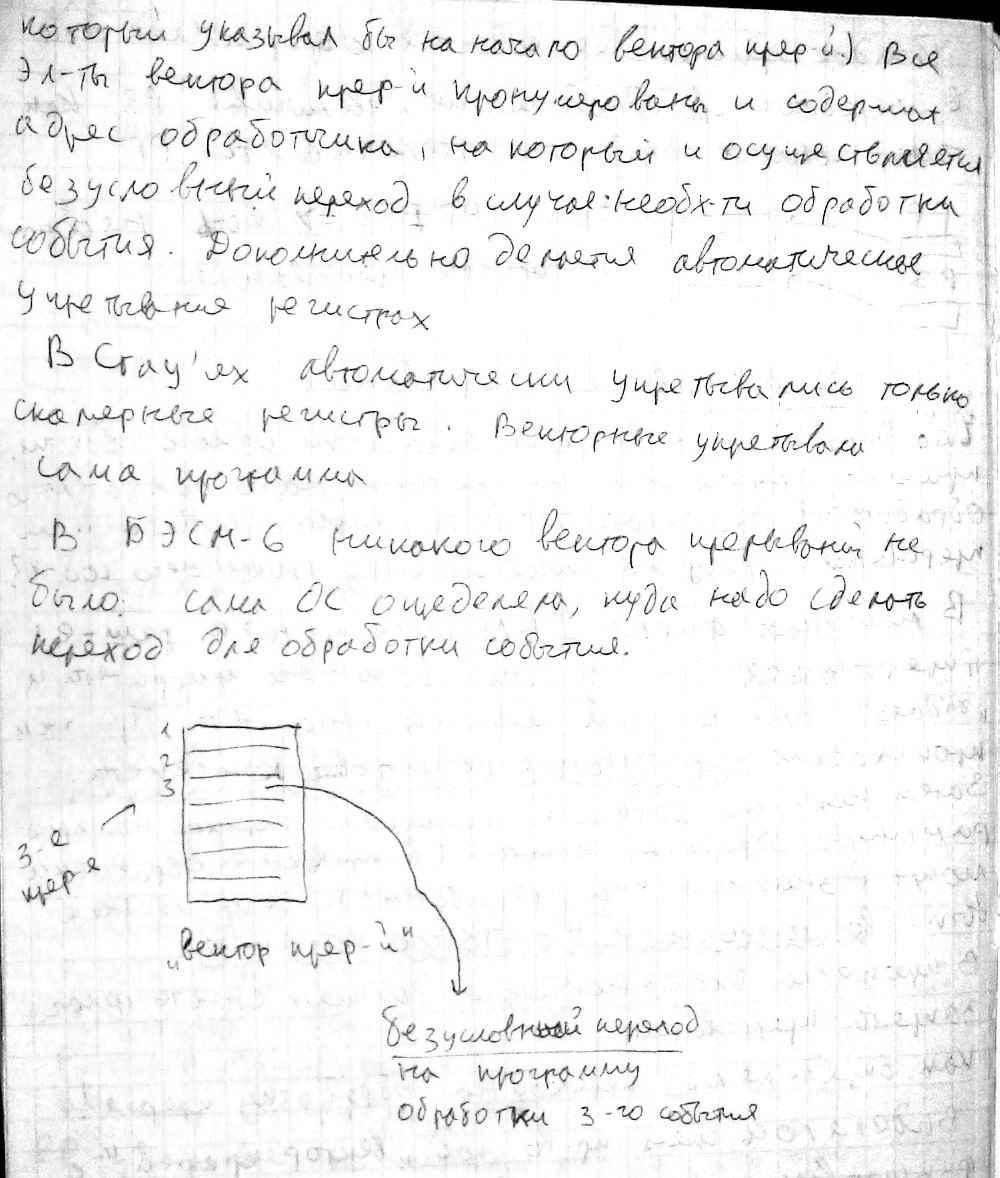 который указывал бы на начало вектора прер-й.) Все
эл-ты вектора прер-й пронумерованы и содержат
адрес обработчика, на который и осуществляется
безусловный переход в случае необх-ти обработки
события. Дополнительно делается автоматическое
упрятывания регистрах
В Cray'ях автоматически упрятывались только
скалярные регистры. Векторные упрятывала
сама программа
В БЭСМ-6 никакого вектора прерываний не
было: сама ОС определяла, куда надо сделать
переход для обработки события.
1
2
3
3-е
прер-е
„вектор прер-й"
безусловный переход
на программу
обработки 3-го события